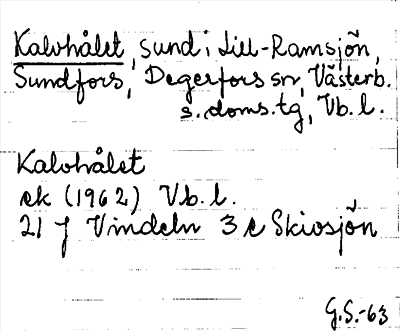 Kalvhålet, sund i Lill-Ramsjön,
Sundfors, Degerfors sn, Västerb.
s. doms. tg, Vb. l.
Kalvhålet
ek (1962) Vb. l.
21 J Vindeln 3 c Skivsjön
G.S.-63